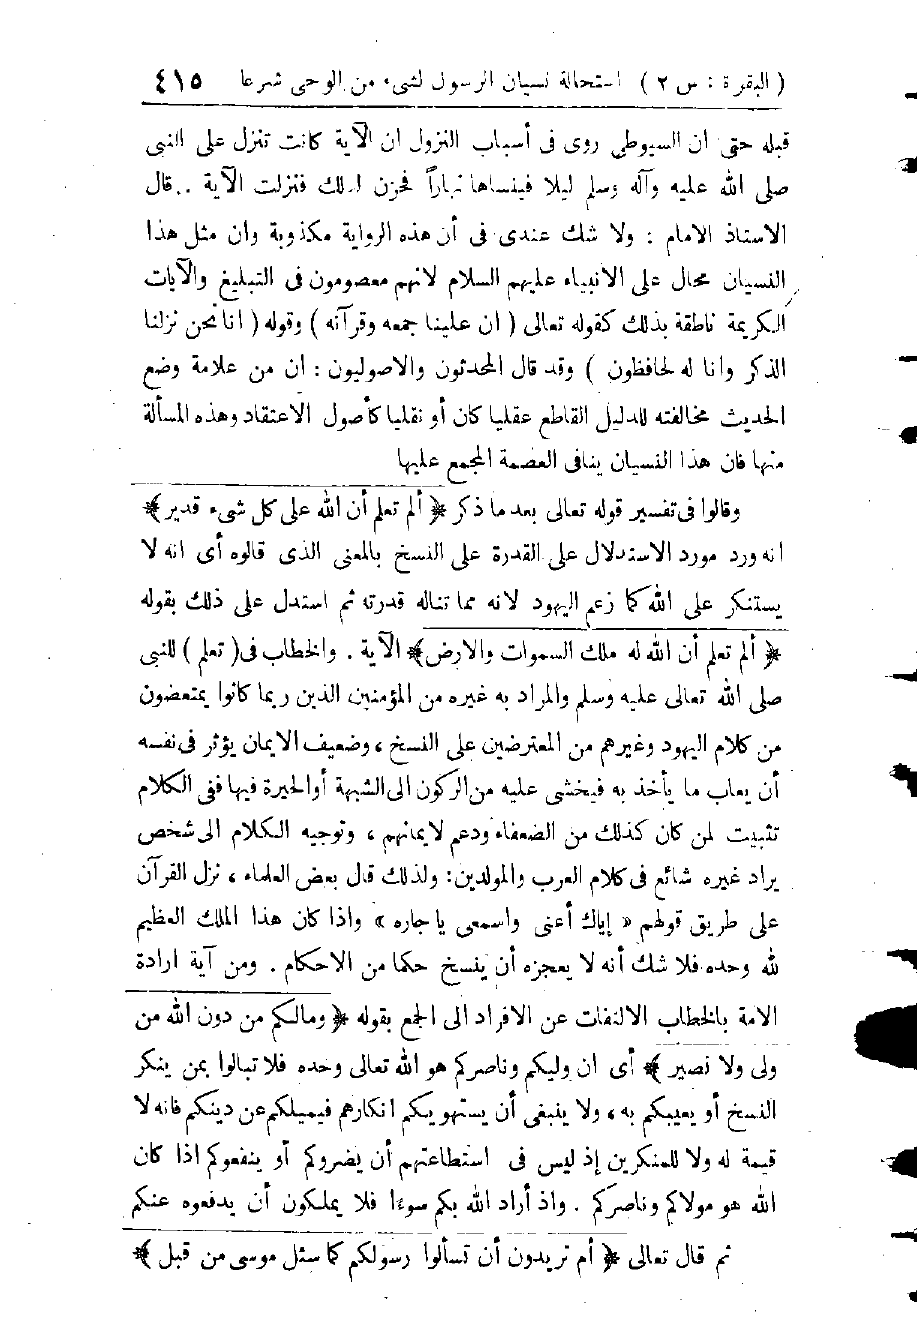 ( البقرة : س ٢ ) استحالة نسيان الرسول لشيء من الوحي شرعا ٤١٥
قبله حتى ان السيوطي روى في أسباب النزول ان الآية كانت تنزل على النبي
صلى الله عليه وآله وسلم ليلا فينساها نهاراً فحزن لذلك فنزلت الآية .. قال
الاستاذ الامام : ولا شك عندي في أن هذه الرواية مكذوبة وان مثل هذا
النسيان محال على الانبياء عليهم السلام لانهم معصومون في التبليغ والآيات
الكريمة ناطقة بذلك كقوله تعالى ( ان علينا جمعه وقرآنه ) وقوله ( انا نحن نزلنا
الذكر وانا له لحافظون ) وقد قال المحدثون والاصوليون : ان من علامة وضع
الحديث مخالفته للدليل القاطع عقليا كان أو نقليا كأصول الاعتقاد وهذه المسألة
منها فان هذا النسيان ينافي العصمة المجمع عليها
وقالوا في تفسير قوله تعالى بعد ما ذكر ﴿ ألم تعلم أن الله على كل شيء قدير ﴾
انه ورد مورد الاستدلال على القدرة على النسخ بالمعنى الذي قالوه أي انه لا
يستنكر على الله كما زعم اليهود لانه مما تناله قدرته ثم استدل على ذلك بقوله
﴿ ألم تعلم أن الله له ملك السموات والارض ﴾ الآية . والخطاب في ( تعلم ) للنبي
صلى الله تعالى عليه وسلم والمراد به غيره من المؤمنين الذين ربما كانوا يمتعضون
من كلام اليهود وغيرهم من المعترضين على النسخ ، وضعيف الايمان يؤثر في نفسه
أن يعاب ما يأخذ به فيخشى عليه من الركون الى الشبهة أو الحيرة فيها ففي الكلام
تثبيت لمن كان كذلك من الضعفاء ودعم لايمانهم ، وتوجيه الكلام الى شخص
يراد غيره شائع في كلام العرب والمولدين : ولذلك قال بعض العلماء ، نزل القرآن
على طريق قولهم « إياك أعني واسمعي ياجاره » واذا كان هذا الملك العظيم
لله وحده فلا شك أنه لا يعجزه أن ينسخ حكما من الاحكام . ومن آية ارادة
الامة بالخطاب الالتفات عن الافراد الى الجمع بقوله ﴿ ومالكم من دون الله من
ولي ولا نصير ﴾ أي ان وليكم وناصركم هو الله تعالى وحده فلا تبالوا بمن ينكر
النسخ أو يعيبكم به ، ولا ينبغي أن يستهويكم انكارهم فيميلكم عن دينكم فانه لا
قيمة له ولا للمنكرين إذ ليس في استطاعتهم أن يضروكم أو ينفعوكم اذا كان
الله هو مولاكم وناصركم . واذ أراد الله بكم سوءا فلا يملكون أن يدفعوه عنكم
ثم قال تعالى ﴿ أم تريدون أن تسألوا رسولكم كما سئل موسى من قبل ﴾